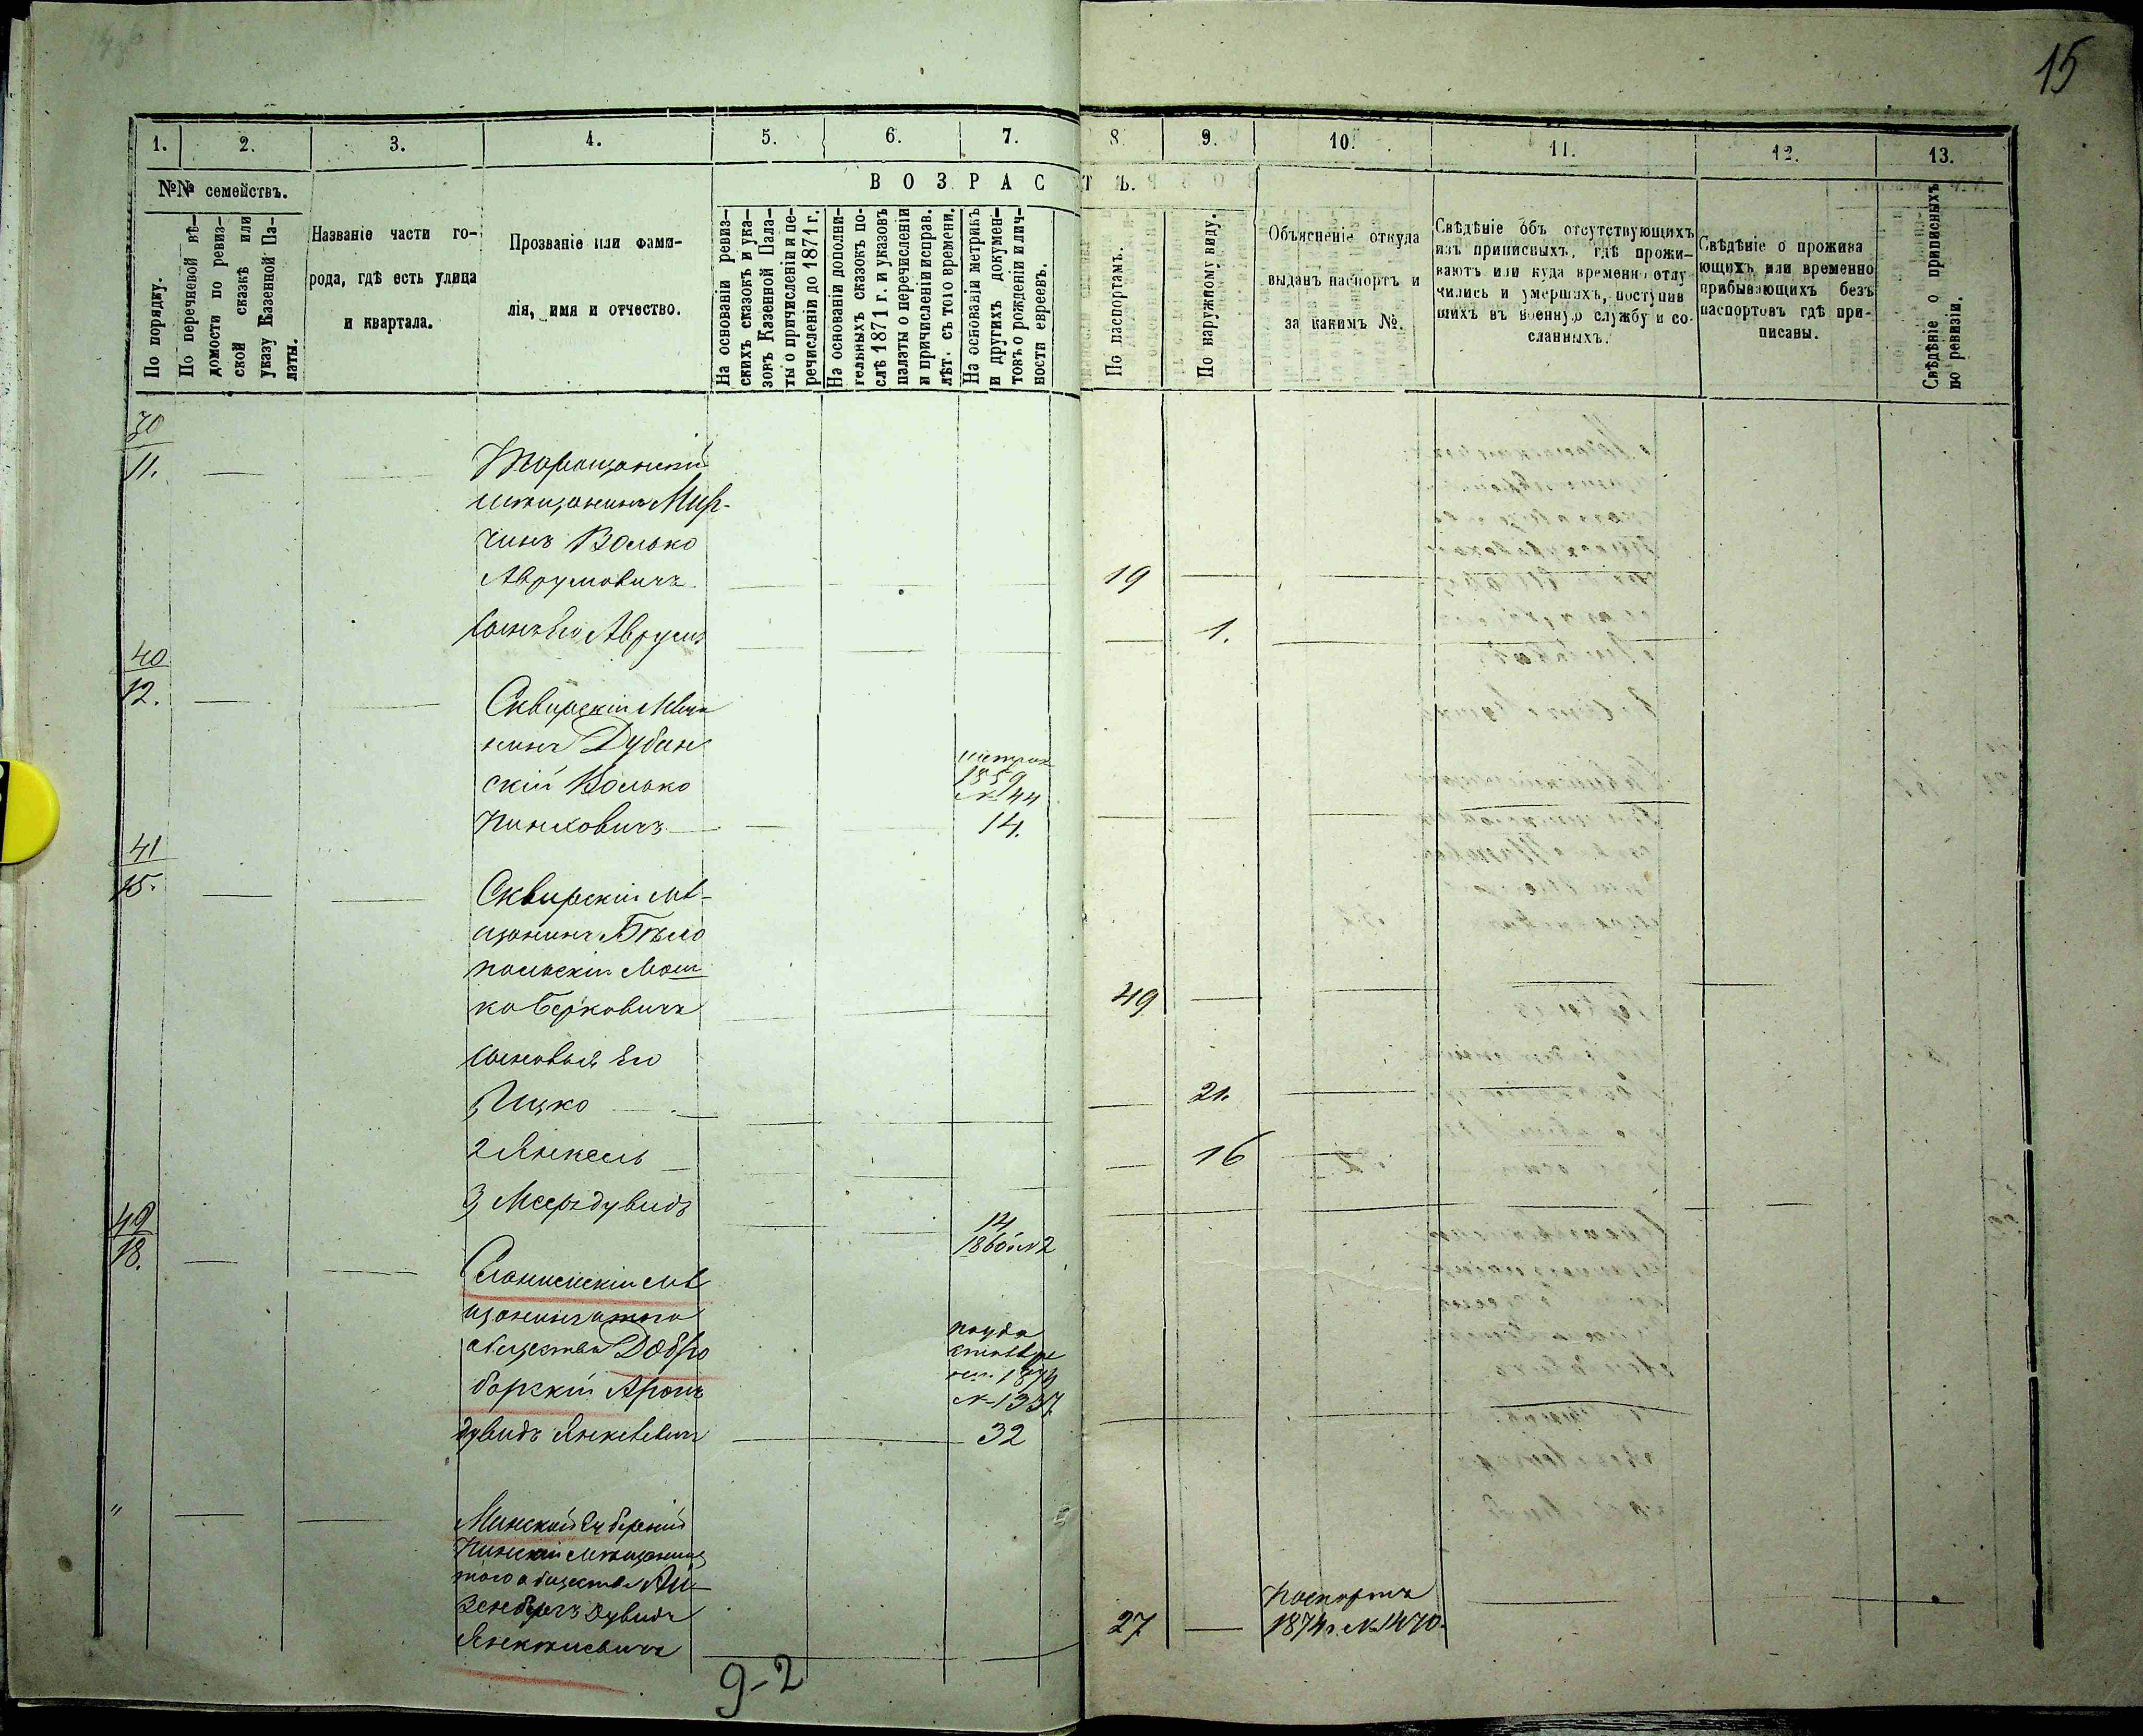 15
1. 2. 3. 4. 5. 6. 7. 8. 9. 10. 11. 12. 13.
№№ семействъ.
В О З Р А С Т Ъ.
По порядку.
По перечневой вѣ-
домости по ревиз-
ской сказкѣ или
указу Казенной Па-
латы.
Названіе части го-
рода, гдѣ есть улица
и квартала.
Прозваніе или фами-
лія, имя и отчество.
На основаніи ревиз-
скихъ сказокъ и ука-
зовъ Казенной Пала-
ты о причисленіи и пе-
речисленіи до 1871 г.
На основаніи дополни-
тельныхъ сказокъ по-
слѣ 1871 г. и указовъ
палаты о перечисленіи
и причисленіи исправ.
лѣт. съ того времени.
На основаніи метрикъ
и другихъ докумен-
товъ о рожденіи и лич-
ности евреевъ.
По паспортамъ.
По наружному виду.
Объясненіе откуда
выданъ паспортъ и
за какимъ №.
Свѣдѣніе объ отсутствующихъ
изъ приписныхъ, гдѣ прожи-
ваютъ или куда временно отлу
чились и умершихъ, поступив
шихъ въ военную службу и со-
сланныхъ.
Свѣдѣніе о прожива
ющихъ или временно
прибывающихъ безъ
паспортовъ гдѣ при-
писаны.
Свѣдѣніе о приписныхъ
по ревизіи.
30
11.
Таращанскій
мѣщанинъ Мир-
чинъ Волько
Аврумовичъ 19
Сынъ Его Аврумъ 1.
40
12.
Сквирскій Мѣща
нинъ Дубин
скій Волько
Пинховичъ
метрик
1859
№ 44
14.
41
15.
Сквирскій мѣ-
щанинъ Бѣло
польскій Мош
ко Берковичъ 49
Сыновья Его
1 Ицко 21.
2 Янкель 16
3 Мееръ дувидъ
14
1860 № 2
42
18.
Слонимскій мѣ
щанинъ того
общества Добро
борскій Аронъ
дувидъ Янкелевичъ
1874
№ 1337.
32
"
Минской Губерніи
Пинскій мѣщанинъ
того общества Ай-
зенбергъ Дувидъ
Янкелевичъ
27
Паспортъ
1874 г. № 1470.
9-2